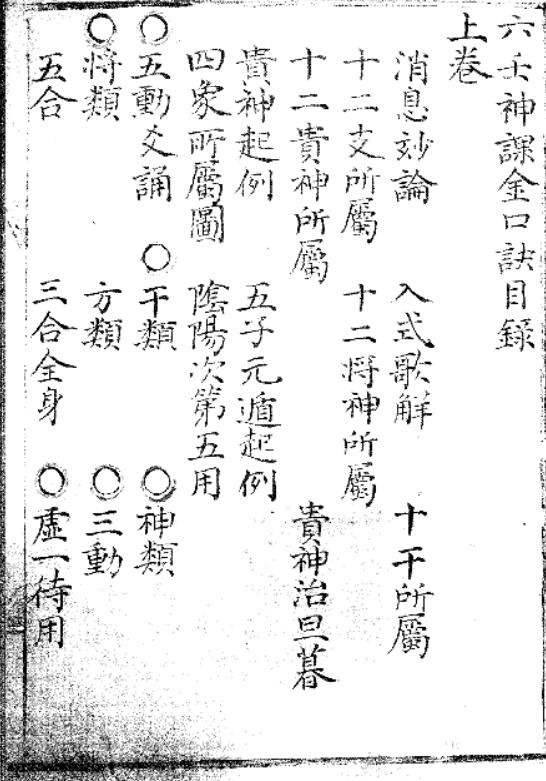 六壬神課金口訣目錄
上卷
消息妙論 入式歌解 十干所屬
十二支所屬 十二將神所屬
十二貴神所屬 貴神治旦暮
貴神起例 五子元遁起例
四象所屬圖 陰陽次第五用
○五動爻誦 ○干類 ○神類
○將類 方類 ○三動
五合 三合全身 ○虛一待用